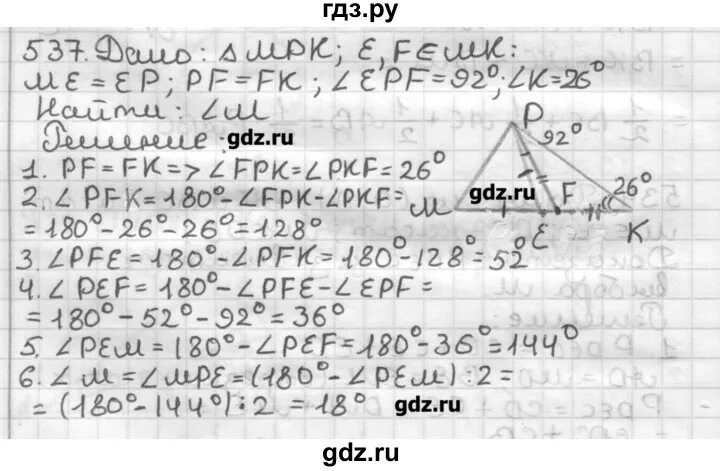 гдз.ру
537. Дано: △MPK; E, F ∈ MK:
ME = EP; PF = FK; ∠EPF = 92°; ∠K = 26°
Найти: ∠M
Решение:
gdz.ru
1. PF = FK => ∠FPK = ∠PKF = 26°
2. ∠PFK = 180° - ∠FPK - ∠PKF =
= 180° - 26° - 26° = 128°
3. ∠PFE = 180° - ∠PFK = 180° - 128° = 52°
4. ∠PEF = 180° - ∠PFE - ∠EPF =
= 180° - 52° - 92° = 36°
5. ∠PEM = 180° - ∠PEF = 180° - 36° = 144°
6. ∠M = ∠MPE = (180° - ∠PEM) : 2 =
= (180° - 144°) : 2 = 18°
gdz.ru
P
92°
gdz.ru
F
26°
M
E
K
gdz.ru